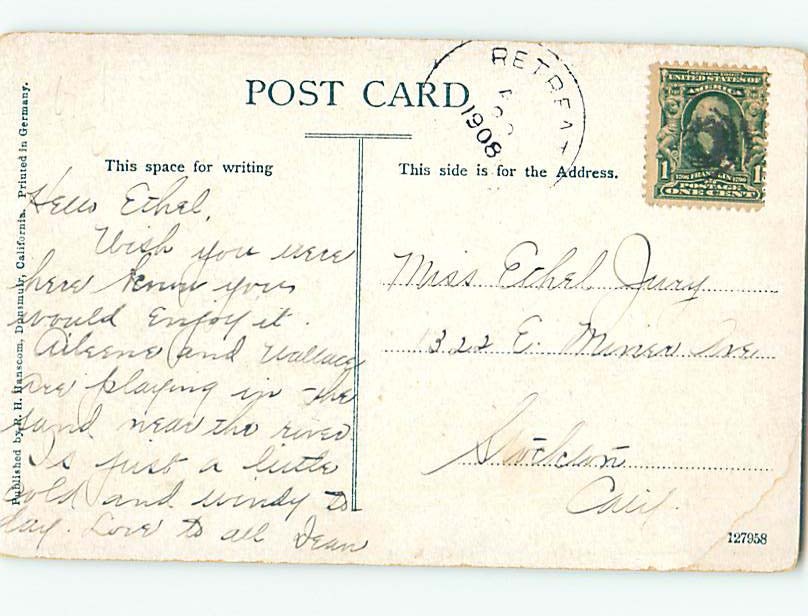 POST CARD
RETREAT
1908
SERIES 1902
UNITED STATES OF
AMERICA
1 FRANKLIN 1
POSTAGE
ONE CENT
This space for writing
This side is for the Address.
Published by R. H. Hanscom, Dunsmuir, California. Printed in Germany.
Hello Ethel,
Wish you were
here know you
would enjoy it.
Aileene and Wallace
are playing in the
sand near the river
Is just a little
cold and windy to
day. Love to all Dean
Miss Ethel Jury
1322 E. Miner Ave
Stockton
Calif.
127958